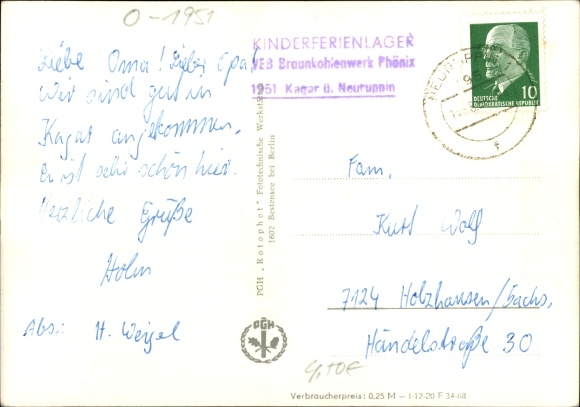 O-1951
Liebe Oma! Lieber Opa!
Wir sind gut in
Kagar angekommen.
Es ist sehr schön hier.
Herzliche Grüße
Holm
Abs.: H. Weigel
KINDERFERIENLAGER
VEB Braunkohlenwerk Phönix
1951 Kagar ü. Neuruppin
10
DEUTSCHE
DEMOKRATISCHE REPUBLIK
PGH „Rotophot" Fototechnische Werkstätten
1602 Bestensee bei Berlin
PGH
Fam.
Kurt Wolf
7124 Holzhausen/Sachs.
Händelstraße 30
Verbraucherpreis: 0,25 M — I-12-20 F 34-68